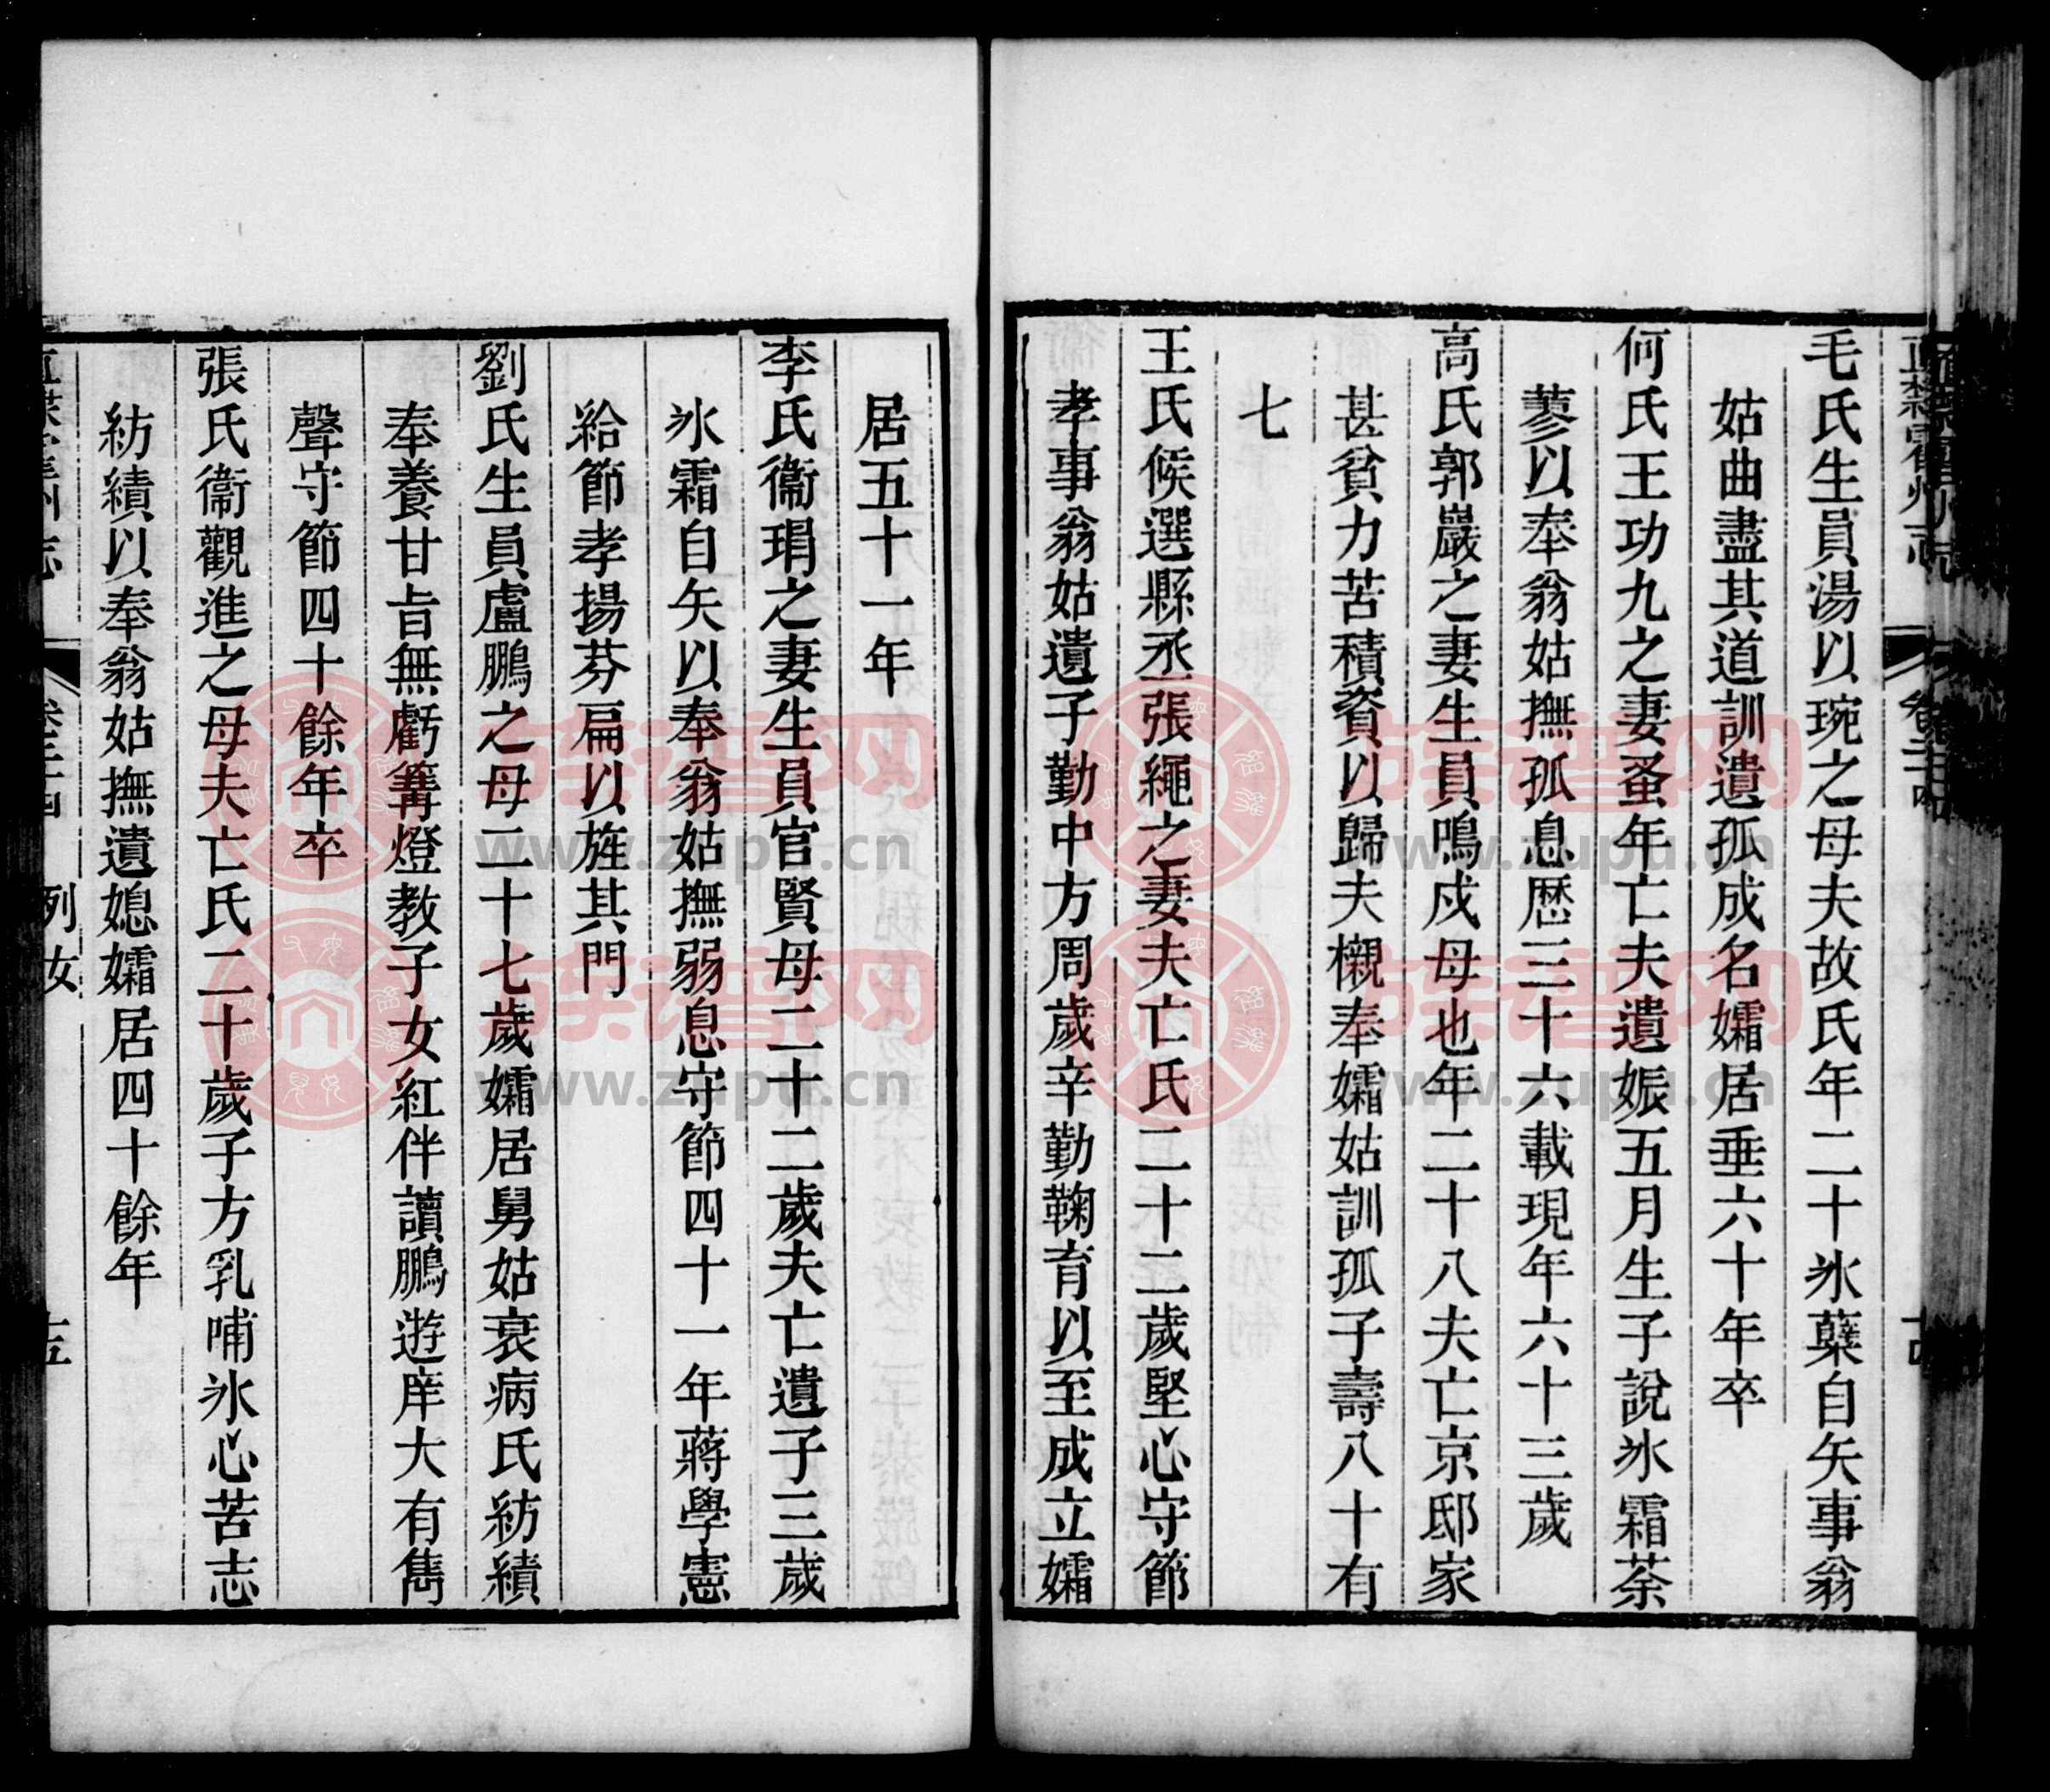 毛氏生員湯以琬之母夫故氏年二十氷蘖自矢事翁
姑曲盡其道訓遺孤成名孀居垂六十年卒
何氏王功九之妻蚤年亡夫遺娠五月生子說氷霜荼
蓼以奉翁姑撫孤息歷三十六載現年六十三歲
高氏郭巖之妻生員鳴戍母也年二十八夫亡京邸家
甚貧力苦積資以歸夫櫬奉孀姑訓孤子壽八十有
七
王氏候選縣丞張繩之妻夫亡氏二十二歲堅心守節
孝事翁姑遺子勤中方周歲辛勤鞠育以至成立孀
居五十一年
李氏衞琄之妻生員官賢母二十二歲夫亡遺子三歲
氷霜自矢以奉翁姑撫弱息守節四十一年蔣學憲
給節孝揚芬扁以旌其門
劉氏生員盧鵬之母二十七歲孀居舅姑衰病氏紡績
奉養甘旨無虧篝燈教子女紅伴讀鵬遊庠大有雋
聲守節四十餘年卒
張氏衞觀進之母夫亡氏二十歲子方乳哺氷心苦志
紡績以奉翁姑撫遺媳孀居四十餘年
列女
十五
族譜网
www.zupu.cn
族譜网
www.zupu.cn
族譜网
www.zupu.cn
族譜网
www.zupu.cn